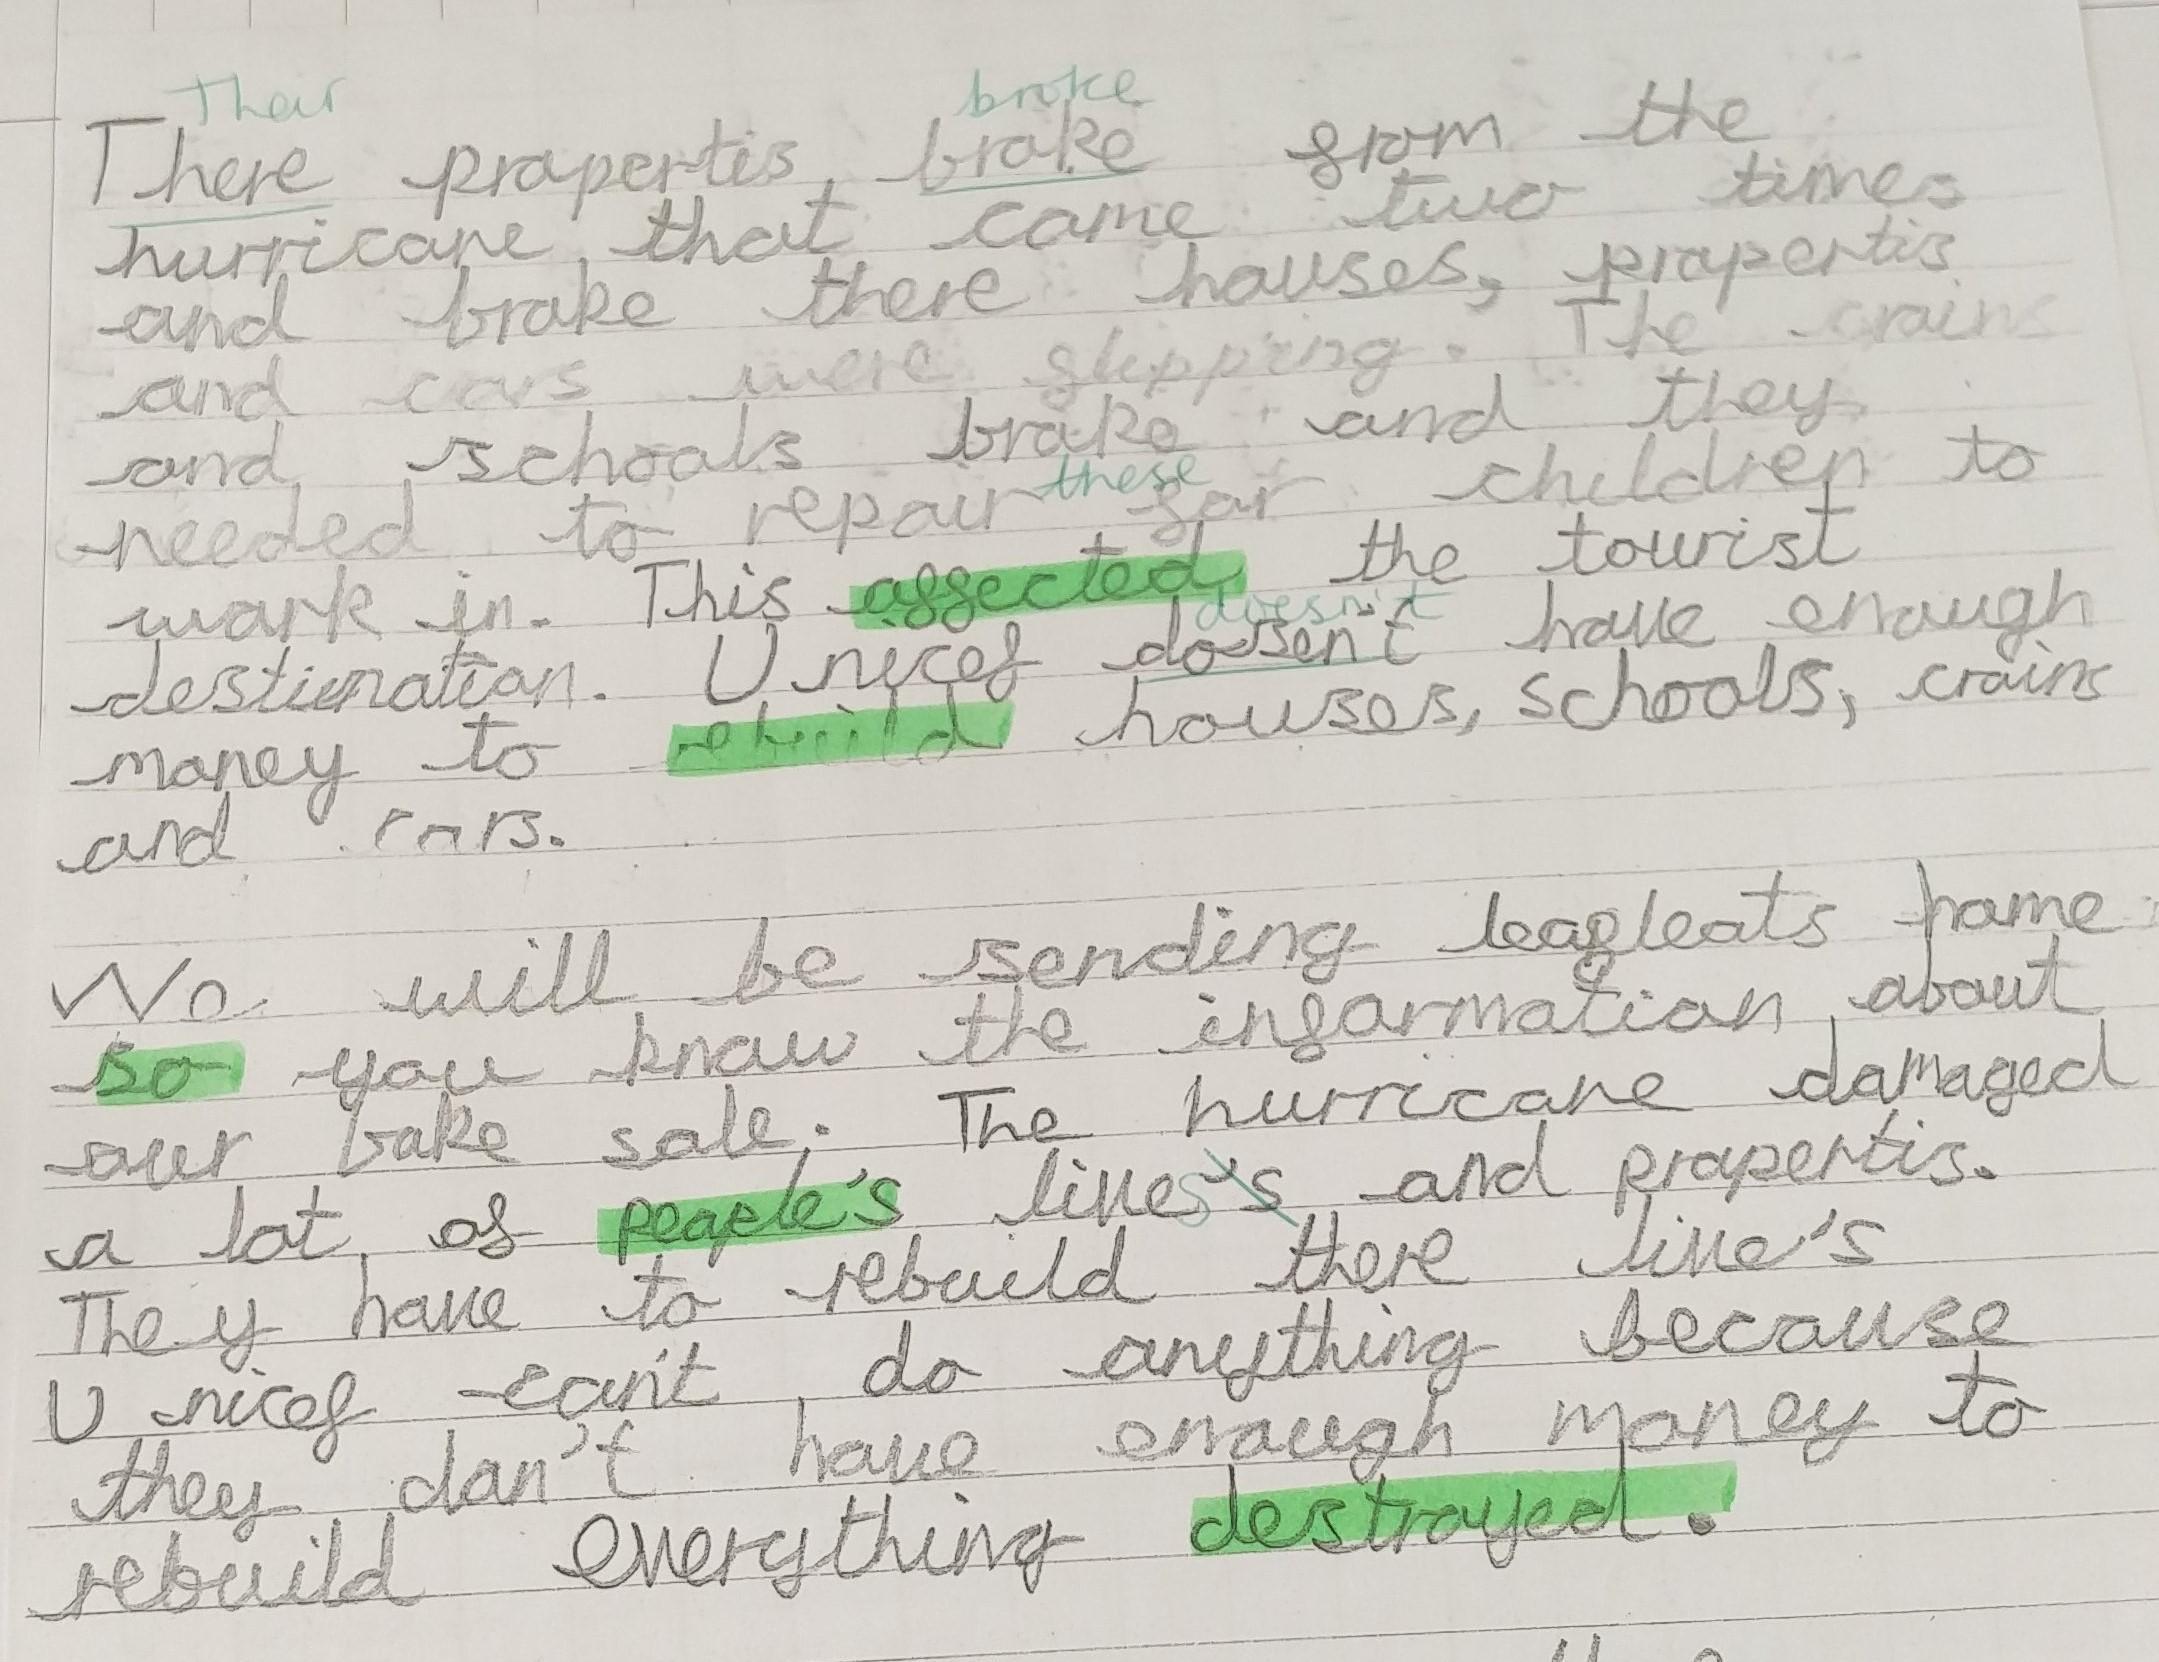 Their broke
There propertis brake from the
hurricane that came two times
and brake there houses, propertis
and cars were flipping. The crains
and schools brake and they
these
needed to repair for children to
work in. This affected the tourist
doesn't
destienation. Unicef dosen't have enough
money to rebuild houses, schools, crains
and cars.
We will be sending leafleats home
so you know the information about
our bake sale. The hurricane damaged
a lot of people's live's and propertis.
s
They have to rebuild there live's
Unicef can't do anything because
they don't have enough money to
rebuild everything destroyed.